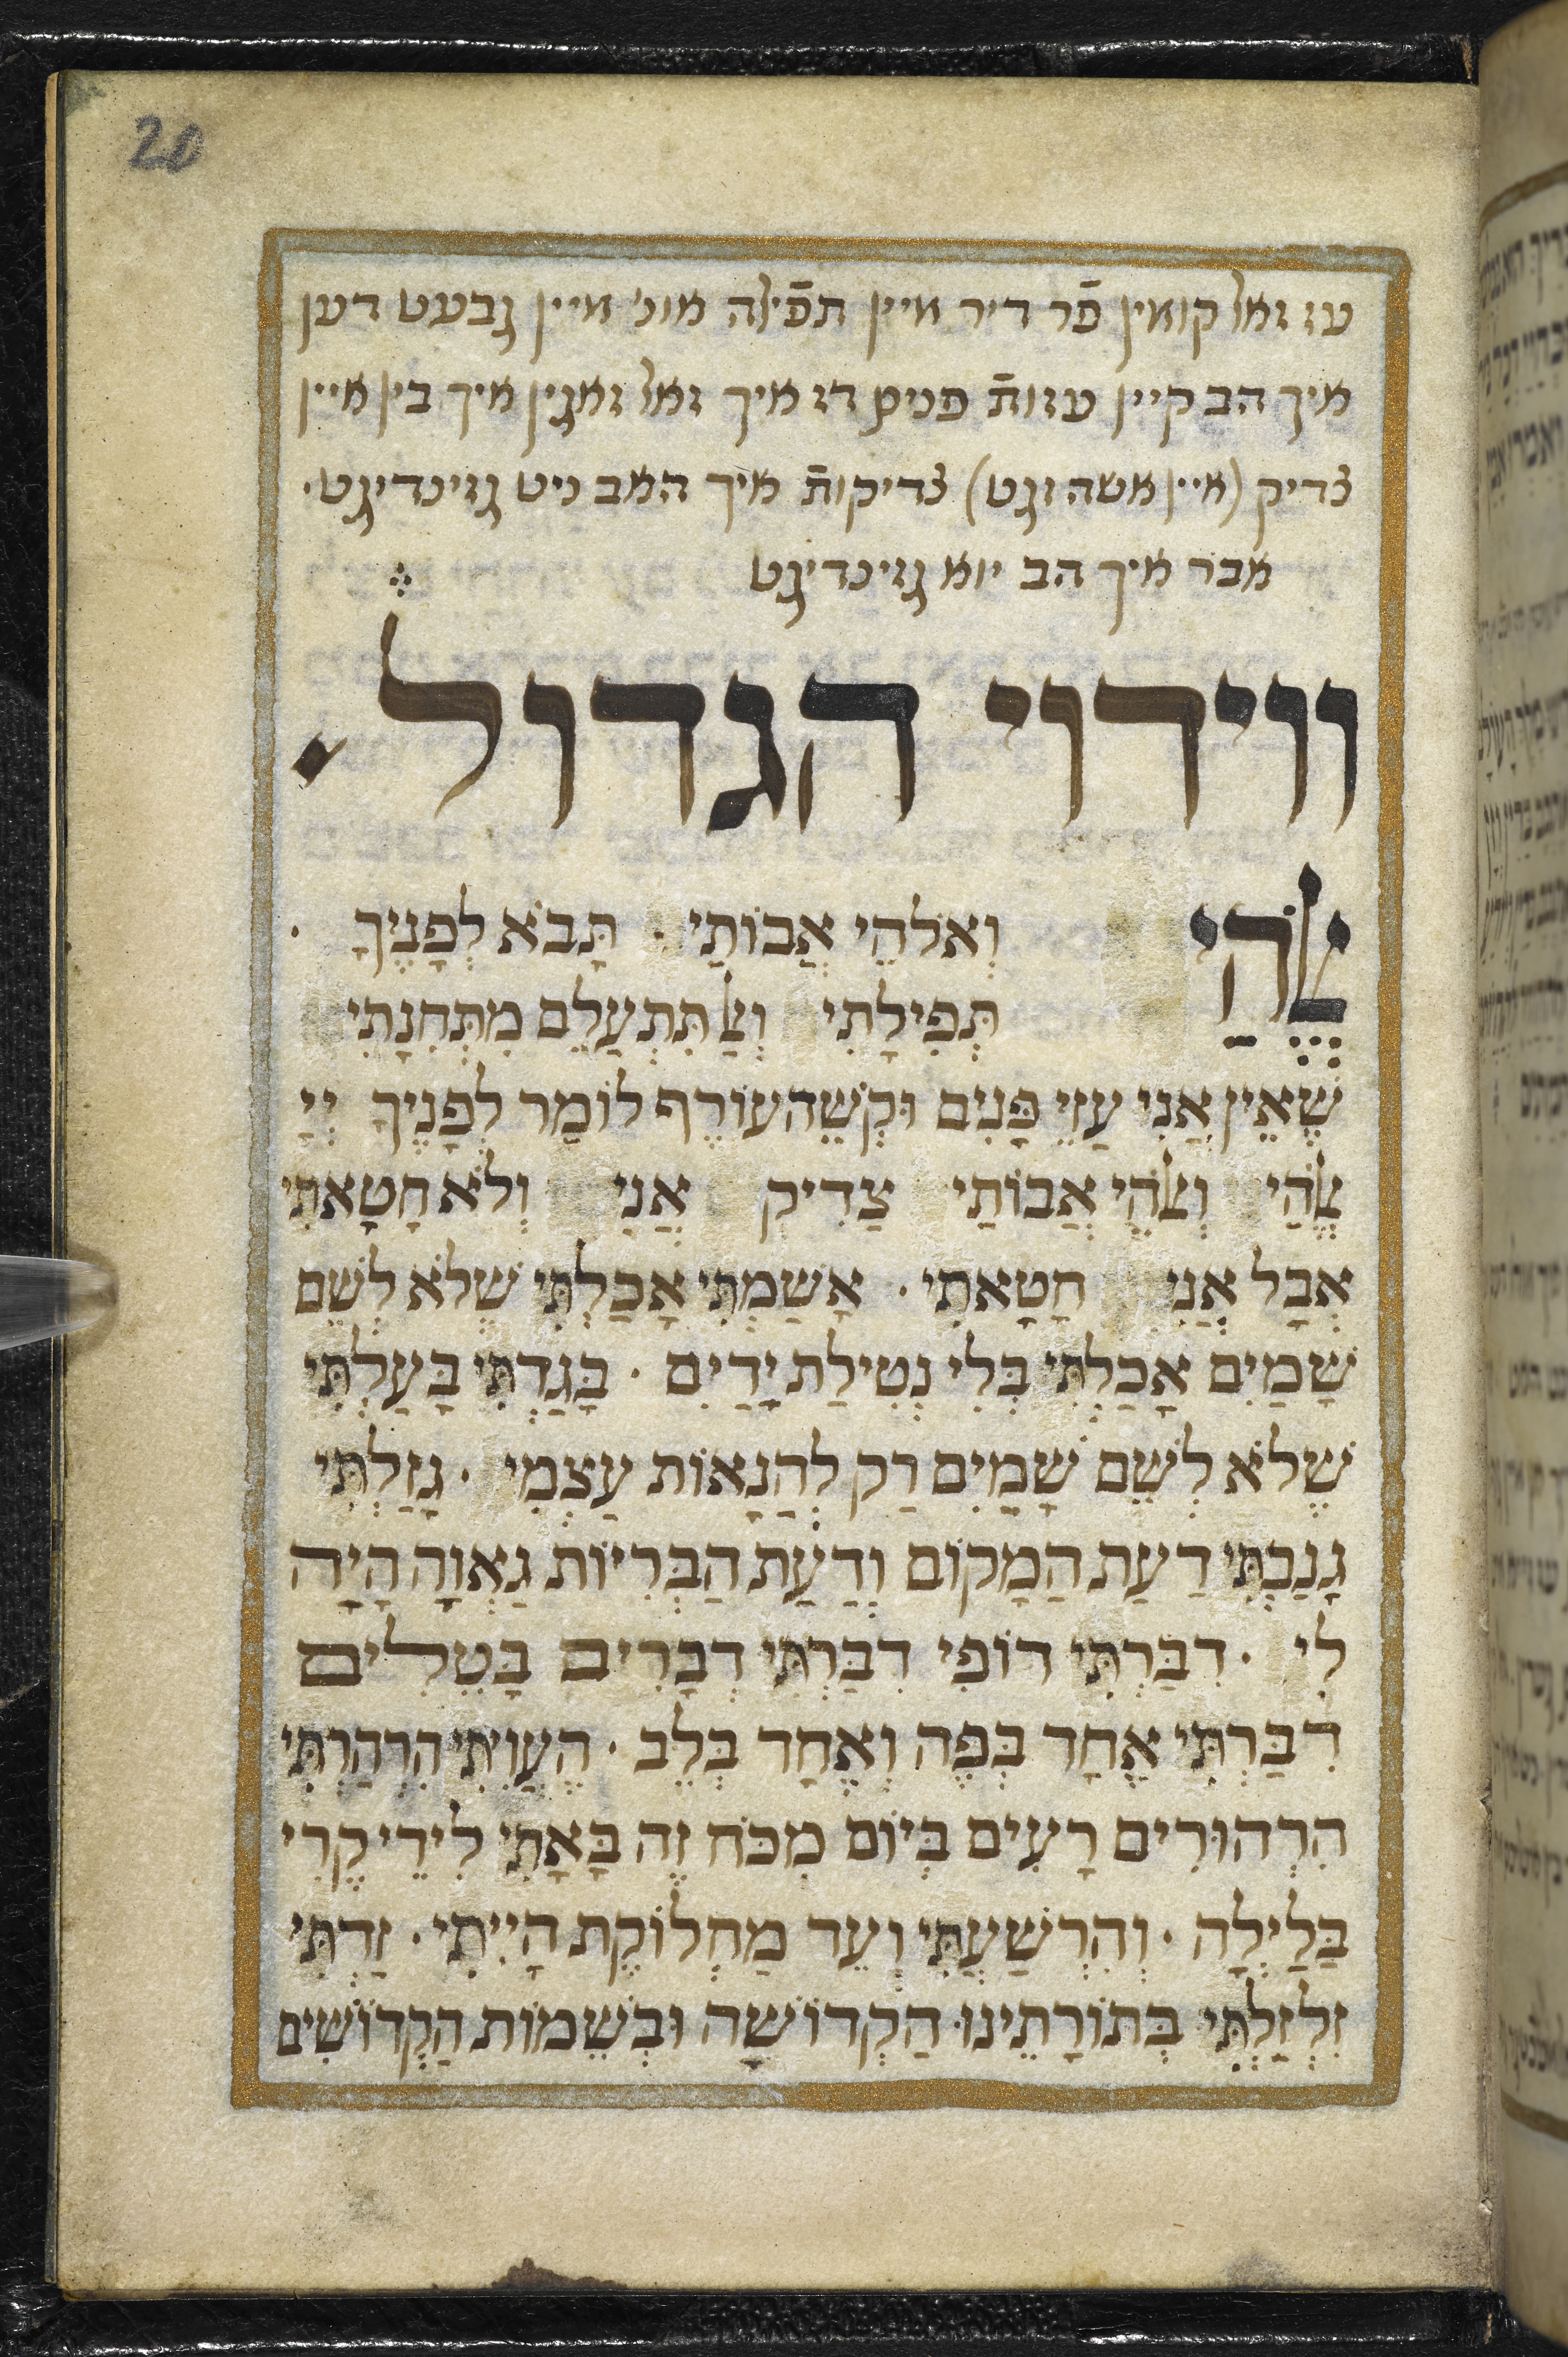 20
עז זאל קומין פֿר דיר מיין תפֿילה מונ' מיין גבעט דען
איך הב קיין עזות פנים דז איך זאל זאגין איך בין איין
צדיק (איין אשה זגט) צדיקות איך האב ניט גזינדיגט.
אבר איך הב יוא גזינדיגט
ווידוי הגדול
אֱלֹהַי וְאלֹהֵי אֲבוֹתַי · תָּבֹא לְפָנֶיךָ ·
תְּפִילָתִי וְאַל תִּתְעַלֵם מִתְּחִנָתִי
שֶׁאֵין אֲנִי עַזֵי פָּנִים וּקְשֵׁה עוֹרֶף לוֹמַר לְפָנֶיךָ יְיָ
אֱלֹהַי וְאלֹהֵי אֲבוֹתַי צַדִיק אֲנִי וְלֹא חָטָאתִי
אְבָל אֲנִי חָטָאתִי · אָשַׁמְתִּי אָכַלְתִּי שֶׁלֹא לְשֵׁם
שָׁמַיִם אָכַלְתִּי בְּלִי נְטִילַת יָדַיִם · בָּגַדְתִּי בָּעַלְתִּי
שֶׁלֹא לְשֵׁם שָׁמַיִם רַק לְהַנָאוֹת עַצְמִי · גָזַלְתִּי
גָנַבְתִּי דַעַת הַמָקוֹם וְדַעַת הַבְּרִיוֹת גַאְוָה הָיָה
לִי · דִבַּרְתִּי דוֹפִי דִבַּרְתִּי דְבָרִים בְּטֵלִים
דִבַּרְתִּי אֶחָד בְּפֶה וְאֶחָד בְּלֵב · הֶעֱוֵיתִי הִרְהַרְתִּי
הִרְהוּרִים רָעִים בְּיוֹם מִכֹּחַ זֶה בָּאָתִי לִידֵי קֶרִי
בַּלַיְלָה · וְהִרְשַׁעֲתִּי וְעֵד מַחְלוֹקֶת הָיִיתִי · זַדְתִּי
זִלְזַלְתִּי בְּתוֹרָתֵינוּ הַקְדוֹשָׁה וּבְשֵׁמוֹת הַקְדוֹשִׁים